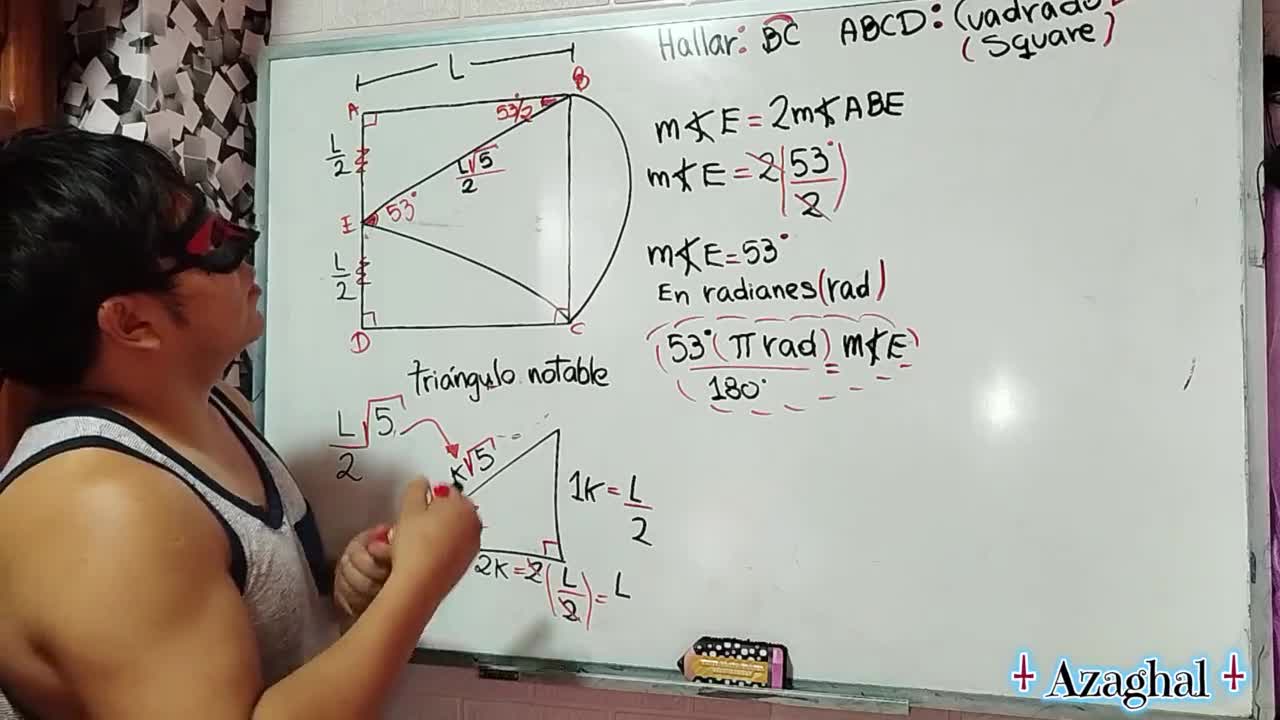 Hallar: BC ABCD: Cuadrado
(Square)
L
A
B
53°/2
L/2
L√5/2
E
53°
L/2
D
C
m∡E = 2m∡ABE
m∡E = 2(53°/2)
m∡E = 53°
En radianes(rad)
53°(π rad)/180° = m∡E
triángulo notable
L/2 √5
K√5
1K = L/2
2K = 2(L/2) = L
Azaghal